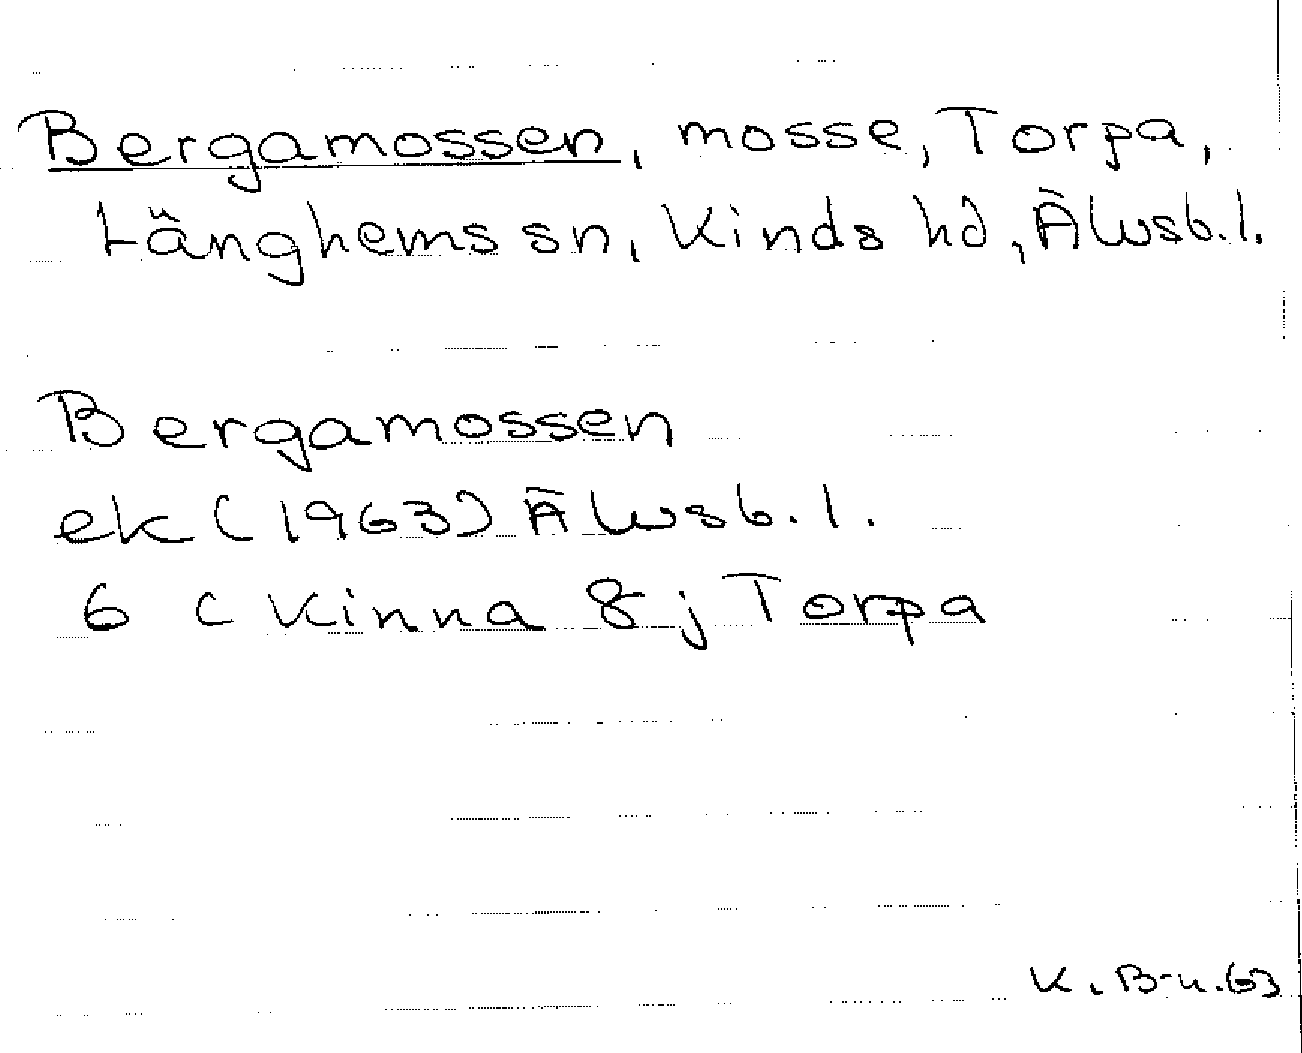 Bergamossen, mosse, Torpa,
Länghems sn, Kinds hd, Älvsb.l.
Bergamossen
ek (1963) Älvsb.l.
6 C Kinna 8j Torpa
K. B-n. 63